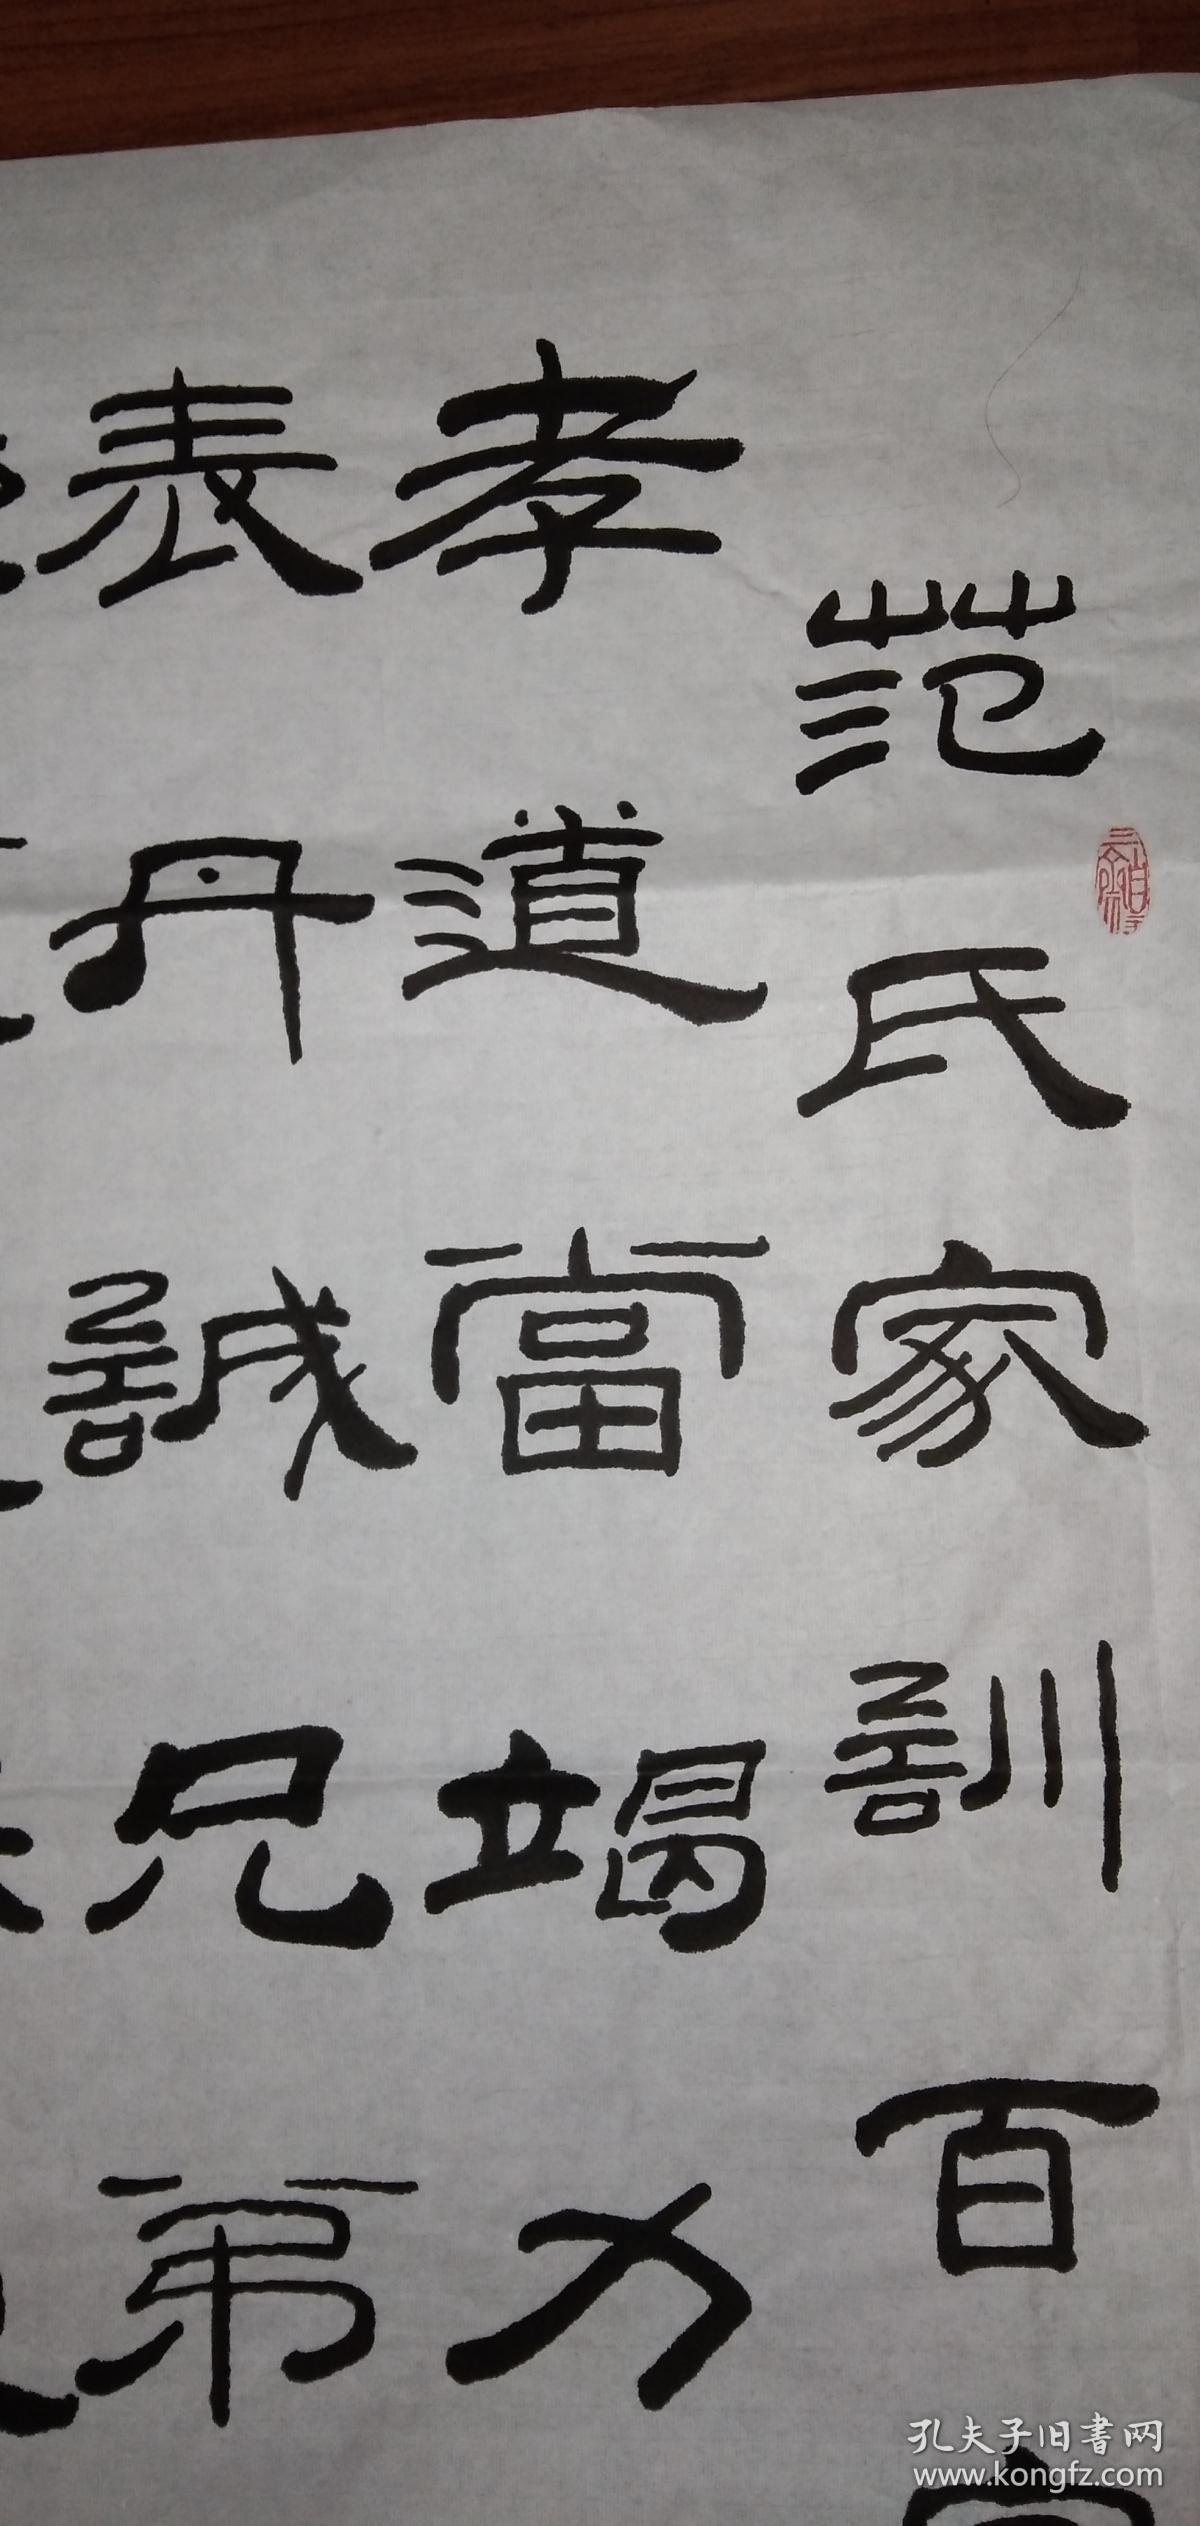 范氏家訓百
孝道當竭力
表丹誠兄弟
孔夫子旧书网
www.kongfz.com